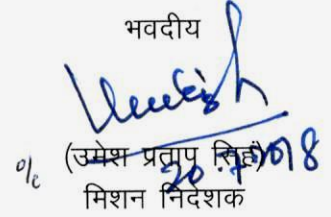 भवदीय
o/c (उमेश प्रताप सिंह)
20.7.2018
मिशन निदेशक